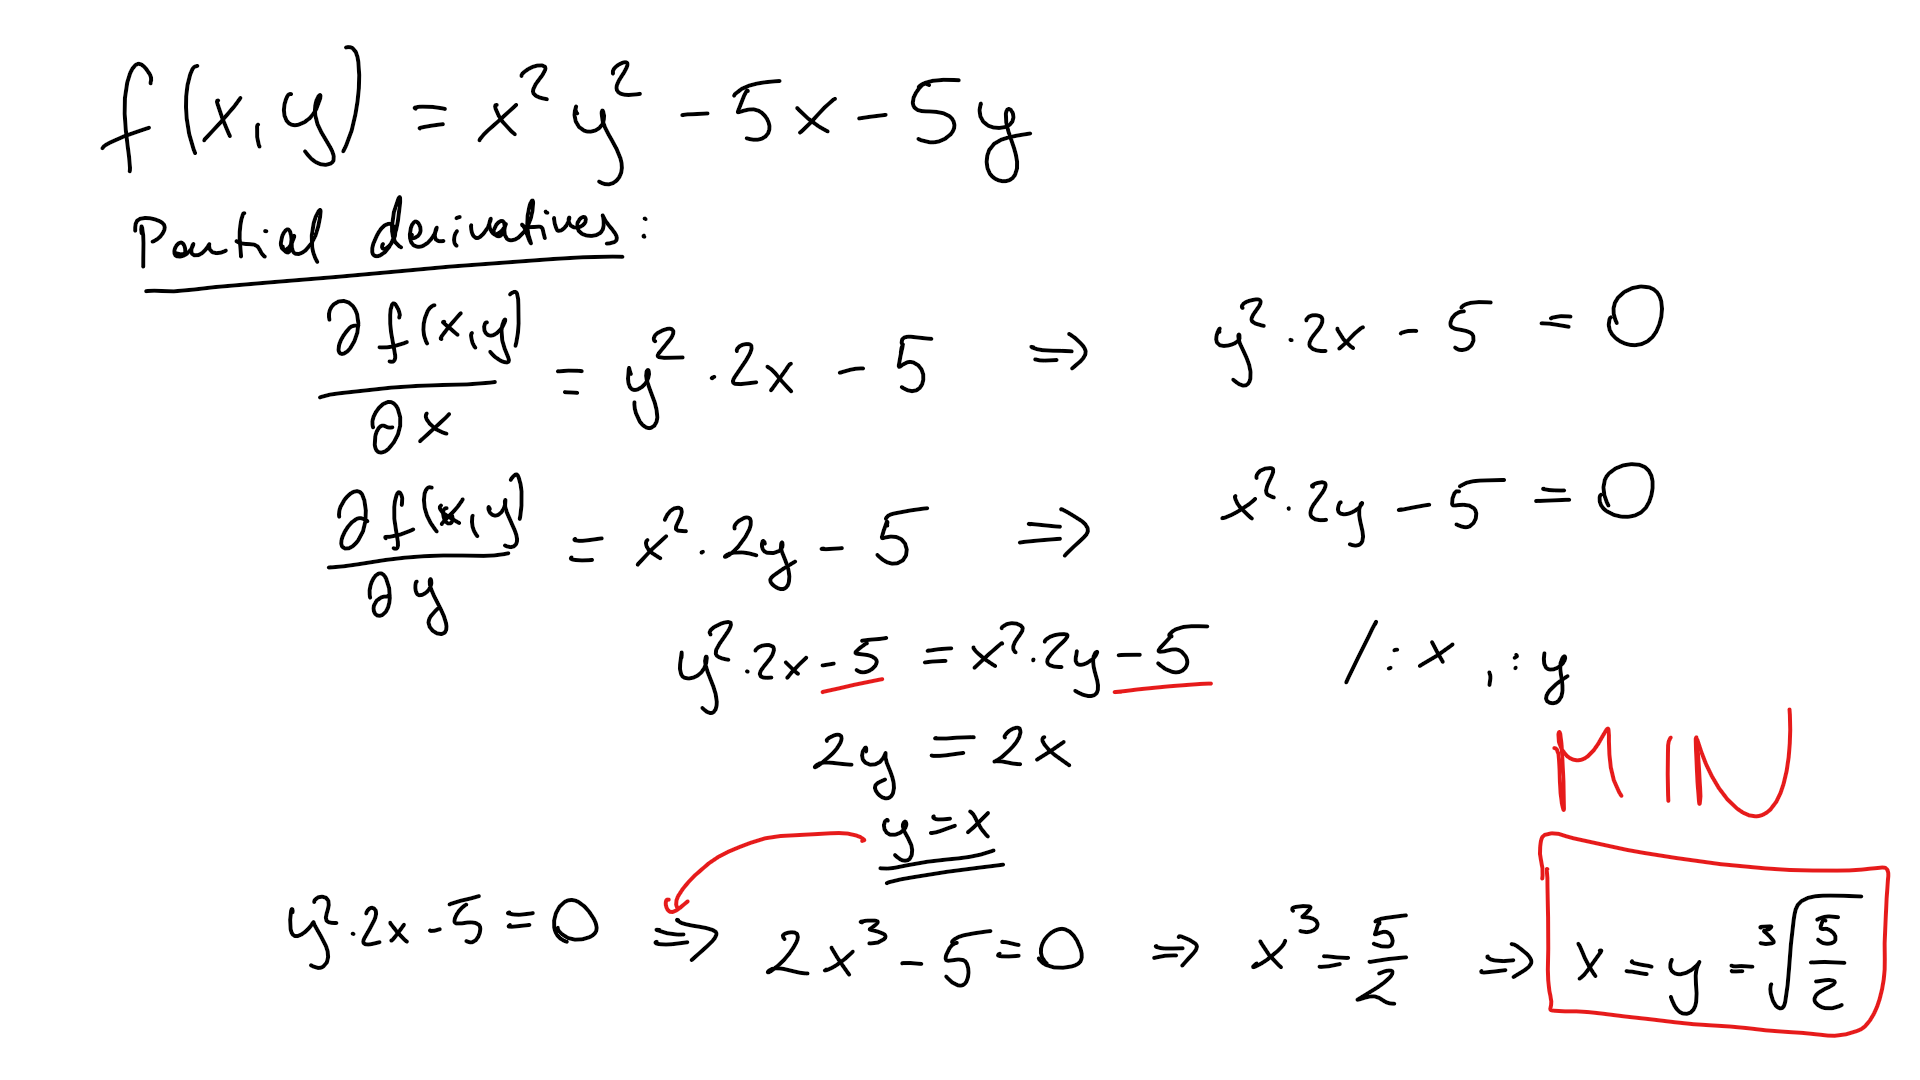 f(x,y) = x² y² - 5x - 5y
Partial derivatives:
∂f(x,y)/∂x = y² · 2x - 5 ⇒ y² · 2x - 5 = 0
∂f(x,y)/∂y = x² · 2y - 5 ⇒ x² · 2y - 5 = 0
y² · 2x - 5 = x² · 2y - 5 / : x , : y
2y = 2x
MIN
y = x
y² · 2x - 5 = 0 ⇒ 2x³ - 5 = 0 ⇒ x³ = 5/2 ⇒ x = y = ³√(5/2)